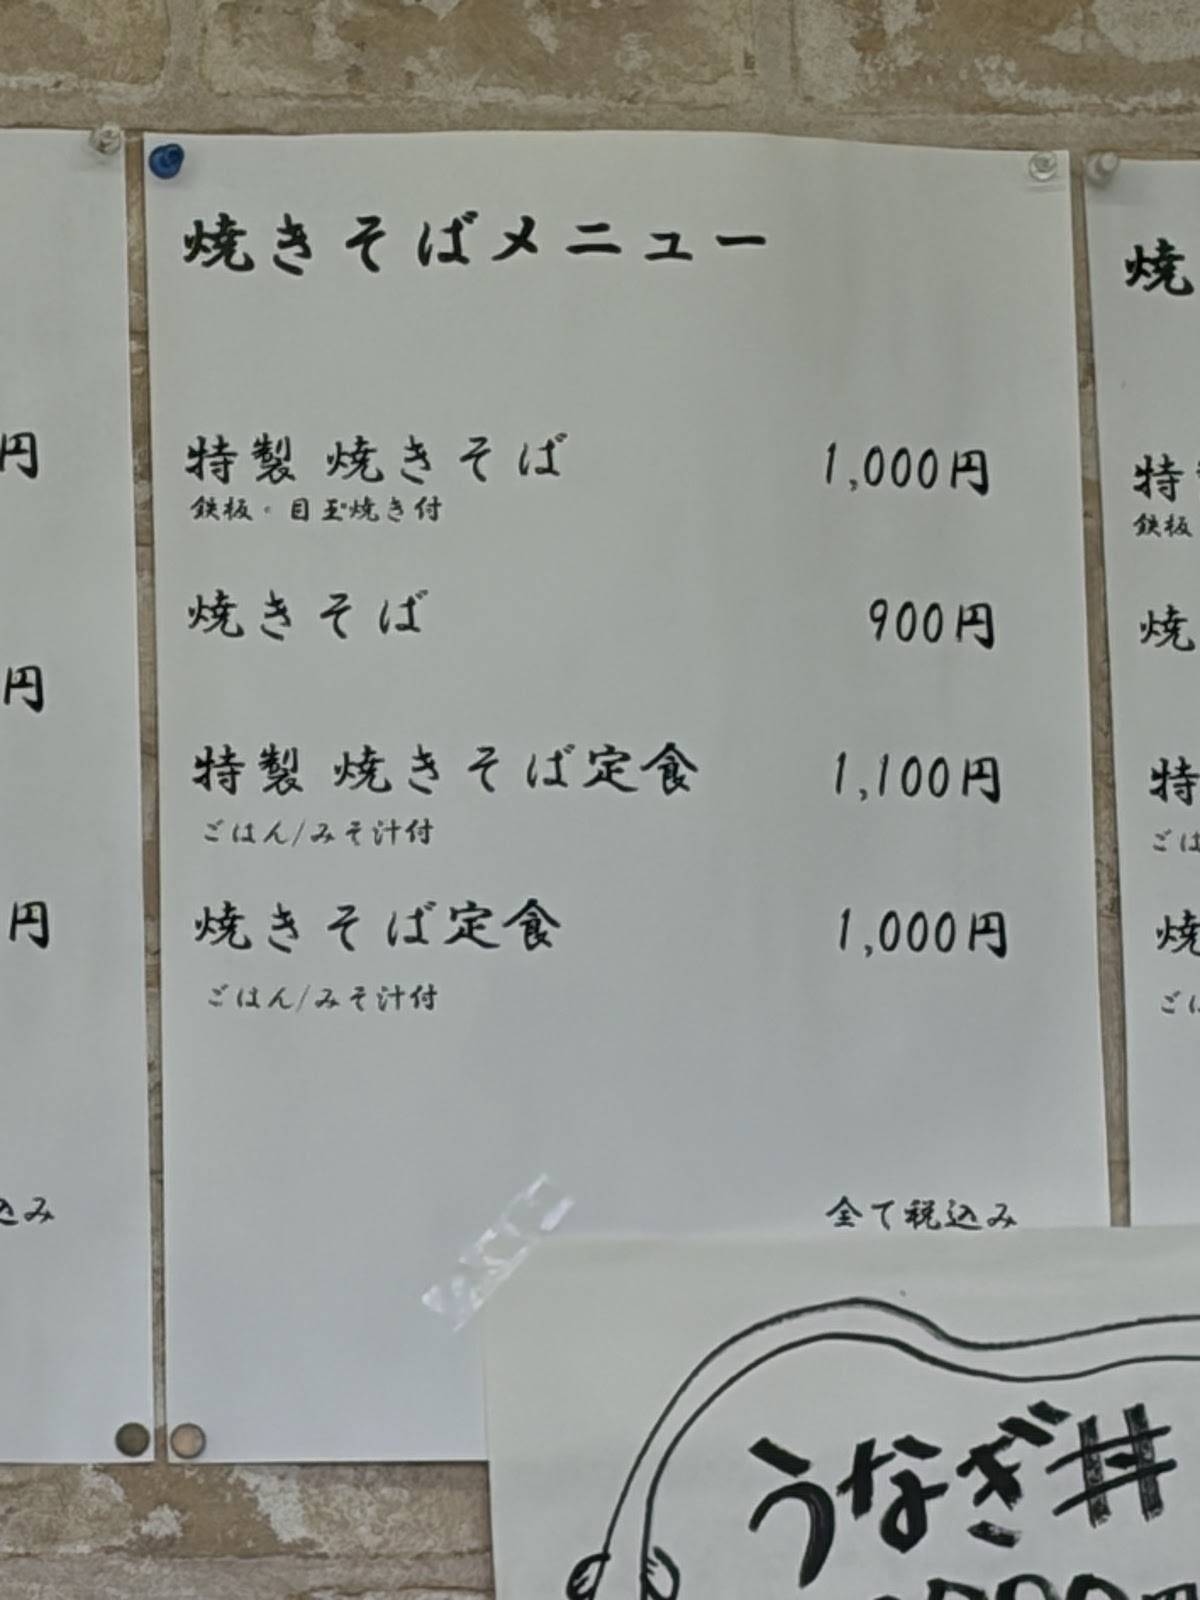 焼きそばメニュー
特製 焼きそば 1,000円
鉄板・目玉焼き付
焼きそば 900円
特製 焼きそば定食 1,100円
ごはん/みそ汁付
焼きそば定食 1,000円
ごはん/みそ汁付
全て税込み
円
円
円
込み
焼
特
鉄板
焼
特
ごは
焼
ごは
うなぎ丼